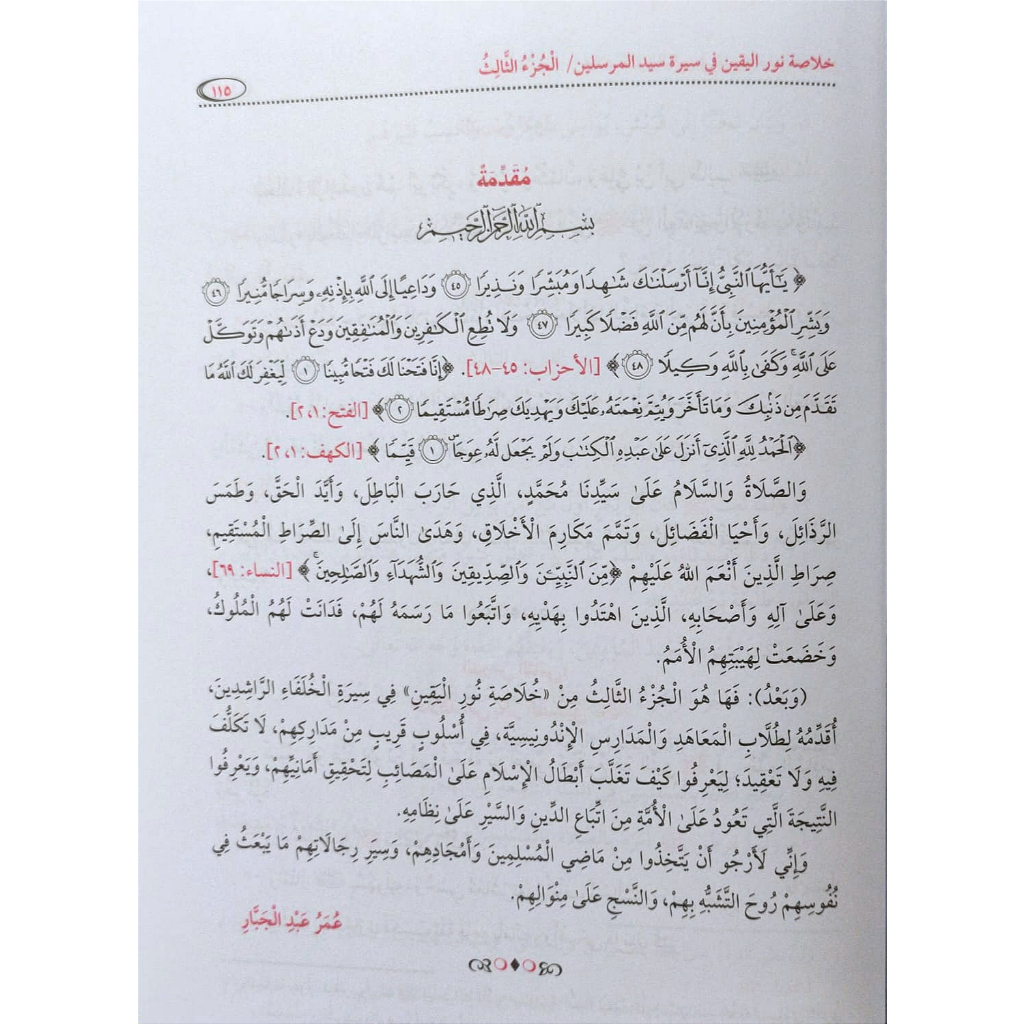 خلاصة نور اليقين في سيرة سيد المرسلين/ الْجُزْءُ الثَّالِثُ
١١٥
مُقَدِّمَةٌ
بِسْمِ اللَّهِ الرَّحْمَٰنِ الرَّحِيمِ
﴿ يَٰٓأَيُّهَا ٱلنَّبِيُّ إِنَّآ أَرْسَلْنَٰكَ شَٰهِدًا وَمُبَشِّرًا وَنَذِيرًا ٤٥ وَدَاعِيًا إِلَى ٱللَّهِ بِإِذْنِهِۦ وَسِرَاجًا مُّنِيرًا ٤٦
وَبَشِّرِ ٱلْمُؤْمِنِينَ بِأَنَّ لَهُم مِّنَ ٱللَّهِ فَضْلًا كَبِيرًا ٤٧ وَلَا تُطِعِ ٱلْكَٰفِرِينَ وَٱلْمُنَٰفِقِينَ وَدَعْ أَذَىٰهُمْ وَتَوَكَّلْ
عَلَى ٱللَّهِ ۚ وَكَفَىٰ بِٱللَّهِ وَكِيلًا ٤٨ ﴾ [الأحزاب: ٤٥-٤٨]. ﴿إِنَّا فَتَحْنَا لَكَ فَتْحًا مُّبِينًا ١ لِّيَغْفِرَ لَكَ ٱللَّهُ مَا
تَقَدَّمَ مِن ذَنۢبِكَ وَمَا تَأَخَّرَ وَيُتِمَّ نِعْمَتَهُۥ عَلَيْكَ وَيَهْدِيَكَ صِرَٰطًا مُّسْتَقِيمًا ٢﴾ [الفتح: ١، ٢].
﴿ٱلْحَمْدُ لِلَّهِ ٱلَّذِىٓ أَنزَلَ عَلَىٰ عَبْدِهِ ٱلْكِتَٰبَ وَلَمْ يَجْعَل لَّهُۥ عِوَجَاۜ ١ قَيِّمًا ﴾ [الكهف: ١، ٢].
وَالصَّلَاةُ وَالسَّلَامُ عَلَىٰ سَيِّدِنَا مُحَمَّدٍ، الَّذِي حَارَبَ الْبَاطِلَ، وَأَيَّدَ الْحَقَّ، وَطَمَسَ
الرَّذَائِلَ، وَأَحْيَا الْفَضَائِلَ، وَتَمَّمَ مَكَارِمَ الْأَخْلَاقِ، وَهَدَىٰ النَّاسَ إِلَىٰ الصِّرَاطِ الْمُسْتَقِيمِ،
صِرَاطِ الَّذِينَ أَنْعَمَ اللهُ عَلَيْهِمْ ﴿مِّنَ ٱلنَّبِيِّـۧنَ وَٱلصِّدِّيقِينَ وَٱلشُّهَدَآءِ وَٱلصَّٰلِحِينَ ۚ ﴾ [النساء: ٦٩]،
وَعَلَىٰ آلِهِ وَأَصْحَابِهِ، الَّذِينَ اهْتَدُوا بِهَدْيِهِ، وَاتَّبَعُوا مَا رَسَمَهُ لَهُمْ، فَدَانَتْ لَهُمُ الْمُلُوكُ،
وَخَضَعَتْ لِهَيْبَتِهِمُ الْأُمَمُ.
(وَبَعْدُ): فَهَا هُوَ الْجُزْءُ الثَّالِثُ مِنْ «خُلَاصَةِ نُورِ الْيَقِينِ» فِي سِيرَةِ الْخُلَفَاءِ الرَّاشِدِينَ،
أُقَدِّمُهُ لِطُلَّابِ الْمَعَاهِدِ وَالْمَدَارِسِ الْإِنْدُونِيسِيَّةِ، فِي أُسْلُوبٍ قَرِيبٍ مِنْ مَدَارِكِهِمْ، لَا تَكَلُّفَ
فِيهِ وَلَا تَعْقِيدَ؛ لِيَعْرِفُوا كَيْفَ تَغَلَّبَ أَبْطَالُ الْإِسْلَامِ عَلَىٰ الْمَصَائِبِ لِتَحْقِيقِ أَمَانِيِّهِمْ، وَيَعْرِفُوا
النَّتِيجَةَ الَّتِي تَعُودُ عَلَىٰ الْأُمَّةِ مِنَ اتِّبَاعِ الدِّينِ وَالسَّيْرِ عَلَىٰ نِظَامِهِ.
وَإِنِّي لَأَرْجُو أَنْ يَتَّخِذُوا مِنْ مَاضِي الْمُسْلِمِينَ وَأَمْجَادِهِمْ، وَسِيَرِ رِجَالَاتِهِمْ مَا يَبْعَثُ فِي
نُفُوسِهِمْ رُوحَ التَّشَبُّهِ بِهِمْ، وَالنَّسْجِ عَلَىٰ مِنْوَالِهِمْ.
عُمَرُ عَبْدِ الْجَبَّارِ